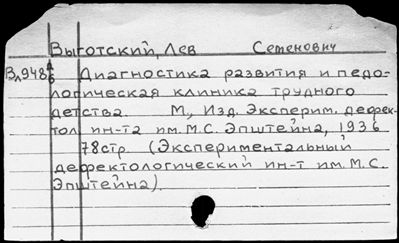 Выготский, Лев Семенович
Вл948 Диагностика развития и педо-
логическая клиника трудного
детства. М., Изд. Эксперим. дефек-
тол. ин-та им. М.С. Эпштейна, 1936
78стр. (Экспериментальный
дефектологический ин-т им. М.С.
Эпштейна).